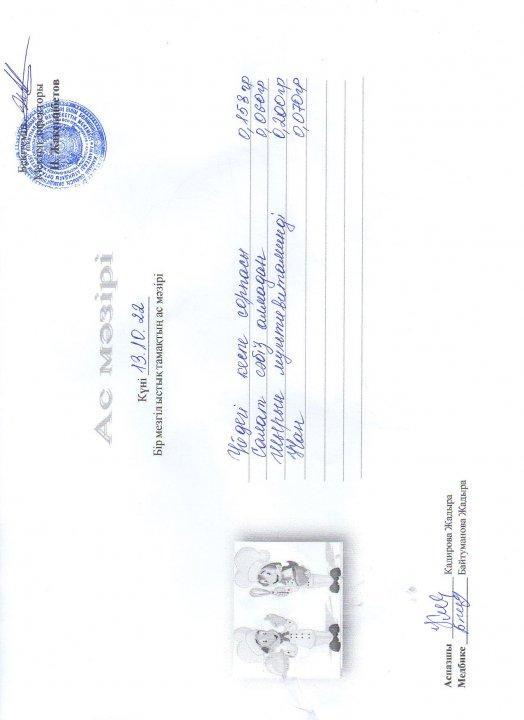 Бекітемін
Мектеп директоры
Н. Жакенбетов
Ас мәзірі
Күні 13.10.22
Бір мезгіл ыстық тамақтың ас мәзірі
Үйдегі кеспе сорпасы 0,153гр
Салат сәбіз алмадан 0,060гр
Шырын мультивитаминді 0,200гр
Нан 0,070гр
Аспазшы Кадирова Жадыра
Медбике Байтуманова Жадыра